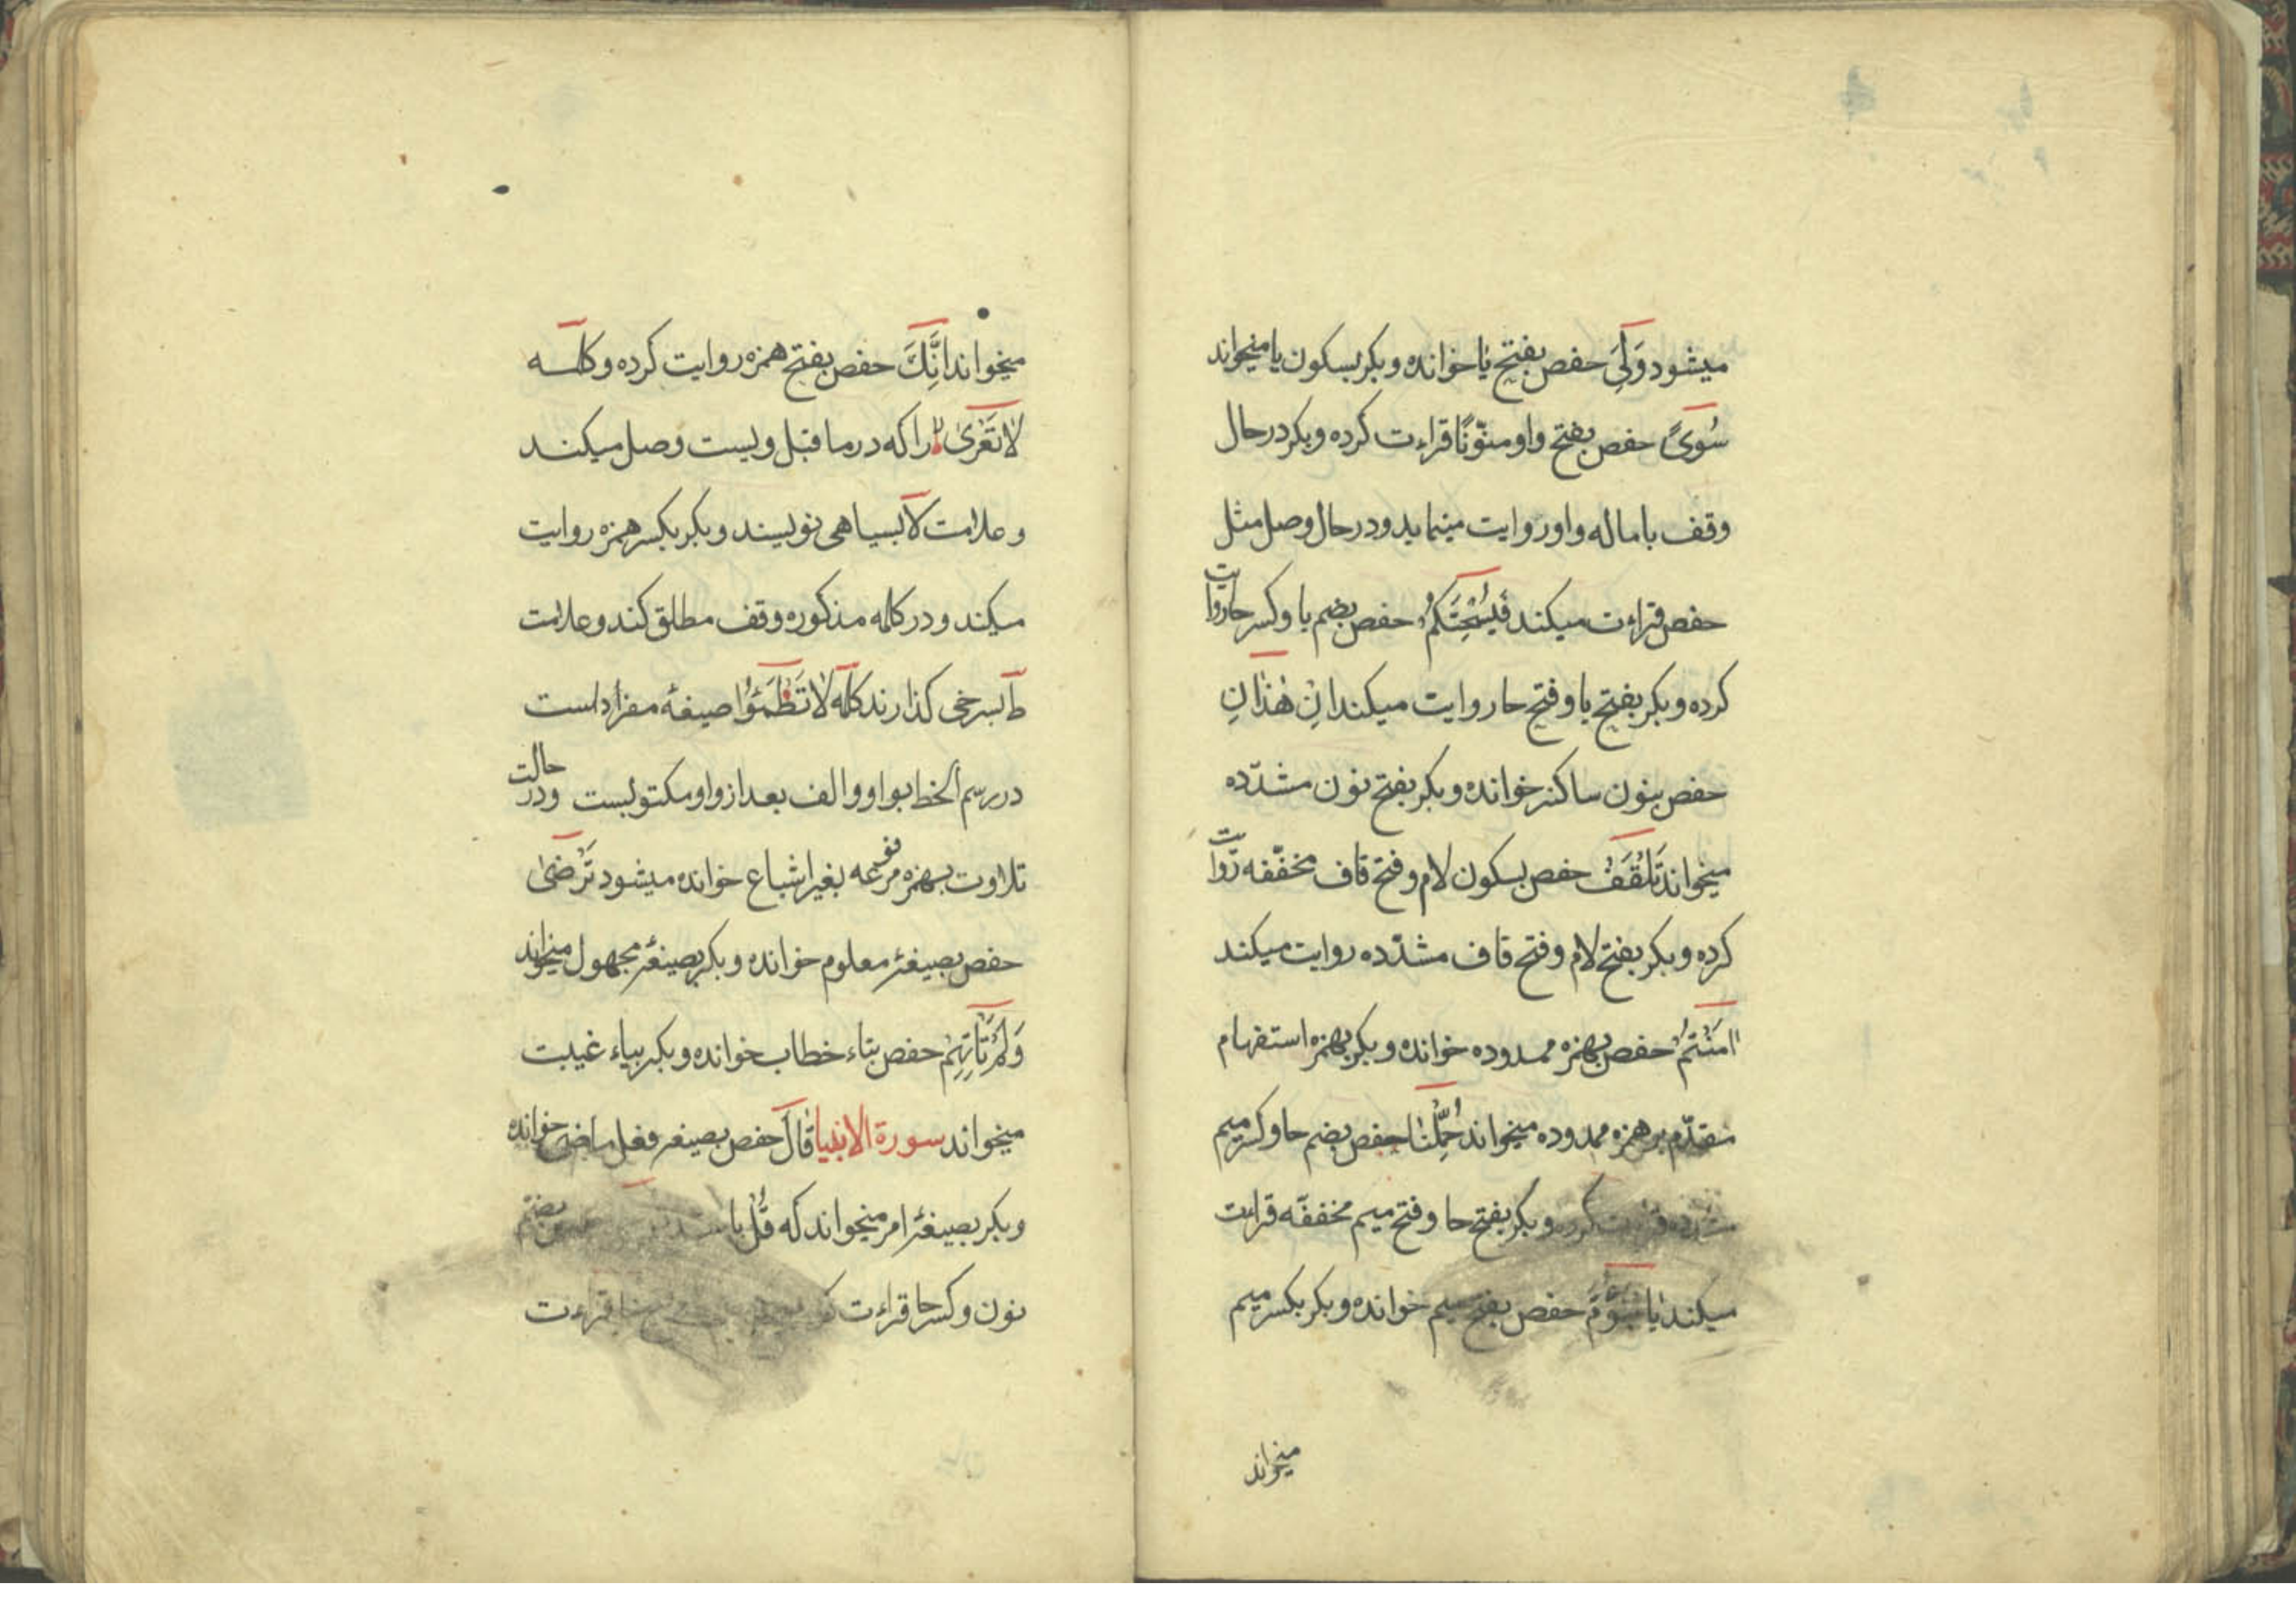 میشود وَلِیَ حفص بفتح یا خوانده و بکر بسکون یا میخواند
سُویً حفص بفتح واو منوّنًا قراءت کرده و بکر در حال
وقف باماله واو روایت مینماید و در حال وصل مثل
حفص قراءت میکند فَیُسْحِتَکُمْ حفص بضم یا و کسر حا روایت
کرده و بکر بفتح یا و فتح حا روایت میکند اِنْ هٰذٰانِ
حفص بنون ساکنه خوانده و بکر بفتح نون مشدّده
میخواند تَلْقَفْ حفص بسکون لام و فتح قاف مخفّفه روایت
کرده و بکر بفتح لام و فتح قاف مشدّده روایت میکند
اٰمَنْتُمْ حفص بهمزه ممدوده خوانده و بکر بهمزه استفهام
مقدّم بر همزه ممدوده میخواند حُمِّلْنٰا حفص بضم حا و کسر میم
مشدّده قراءت کرده و بکر بفتح حا و فتح میم مخففّه قراءت
میکند یَا بْنَؤُمَّ حفص بفتح میم خوانده و بکر بکسر میم
میخواند
میخواند اَنَّكَ حفص بفتح همزه روایت کرده و کلمه
لٰا تَعْرٰیٰ را که در ما قبل ویست وصل میکند
و علامت لا بسیاهی نویسند و بکر بکسر همزه روایت
میکند و در کلمه مذکوره وقف مطلق کند و علامت
ط بسرخی کذارند کلمه لٰا تَظْمَؤُا صیغهٔ مفرد است
در رسم الخط بواو و الف بعد از واو مکتوبست و در حالت
تلاوت بهمزه مرفوعه بغیر اشباع خوانده میشود تَرْضیٰ
حفص بصیغهٔ معلوم خوانده و بکر بصیغهٔ مجهول میخواند
وَلَمْ تَأْتِهِمْ حفص بتاء خطاب خوانده و بکر بیاء غیبت
میخواند سورة الانبیا قٰالَ حفص بصیغه فعل ماضی خوانده
و بکر بصیغهٔ امر میخواند که قُلْ باشد حفص بضم
نون و کسر حا قراءت قراءت